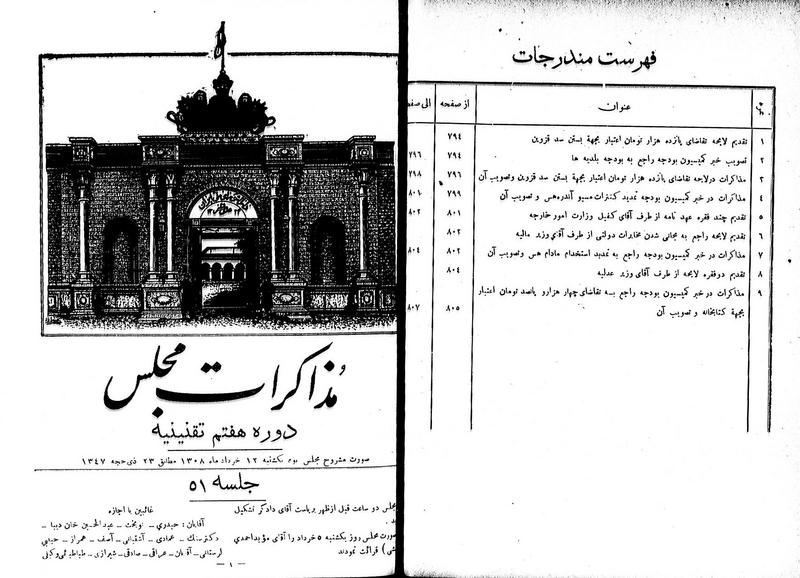 فهرست مندرجات
نمره عنوان از صفحه الی صفحه
۱ تقدیم لایحه تقاضای پانزده هزار تومان اعتبار بجهة بستن سد قزوین ۷۹۴
۲ تصویب خبر کمیسیون بودجه راجع به بودجه بلدیه ها ۷۹۴ ۷۹۶
۳ مذاکرات درلایحه تقاضای پانزده هزار تومان اعتبار بجهة بستن سد قزوین وتصویب آن ۷۹۶ ۷۹۸
۴ مذاکرات در خبر کمیسیون بودجه تمدید کنترات مسیو آندره‌هس و تصویب آن ۷۹۹ ۸۰۱
۵ تقدیم چند فقره عهد نامه از طرف آقای کفیل وزارت امور خارجه ۸۰۱ ۸۰۲
۶ تقدیم لایحه راجع به مجانی شدن مخابرات دولتی از طرف آقای وزیر مالیه ۸۰۲
۷ مذاکرات در خبر کمیسیون بودجه راجع به تمدید استخدام مادام هس وتصویب آن ۸۰۲ ۸۰۴
۸ تقدیم دوفقره لایحه از طرف آقای وزیر عدلیه ۸۰۴
۹ مذاکرات در خبر کمیسیون بودجه راجع بسه تقاضای چهار هزارو پانصد تومان اعتبار
بجهة کتابخانه و تصویب آن ۸۰۵ ۸۰۷
مُذاکرات مجلس
دوره هفتم تقنینیه
صورت مشروح مجلس یکشنبه ۱۲ خرداد ماه ۱۳۰۸ مطابق ۲۳ ذی حجه ۱۳۴۷
جلسه ۵۱
مجلس دو ساعت قبل ازظهر بریاست آقای دادگر تشکیل
صورت مجلس روز یکشنبه ۵ خرداد را آقای مؤیداحمدی
قرائت نمودند
غائبین با اجازه
آقایان : حیدری ـ نوبخت ـ عبدالحسین خان دیبا ـ
دکترسنگ ـ عمادی ـ آشتیانی ـ آصف ـ همراز ـ
لرستانی ـ آقایان ـ عراقی ـ صادقی ـ شیرازی ـ طباطبائی وکیلی
ـ ۱ ـ